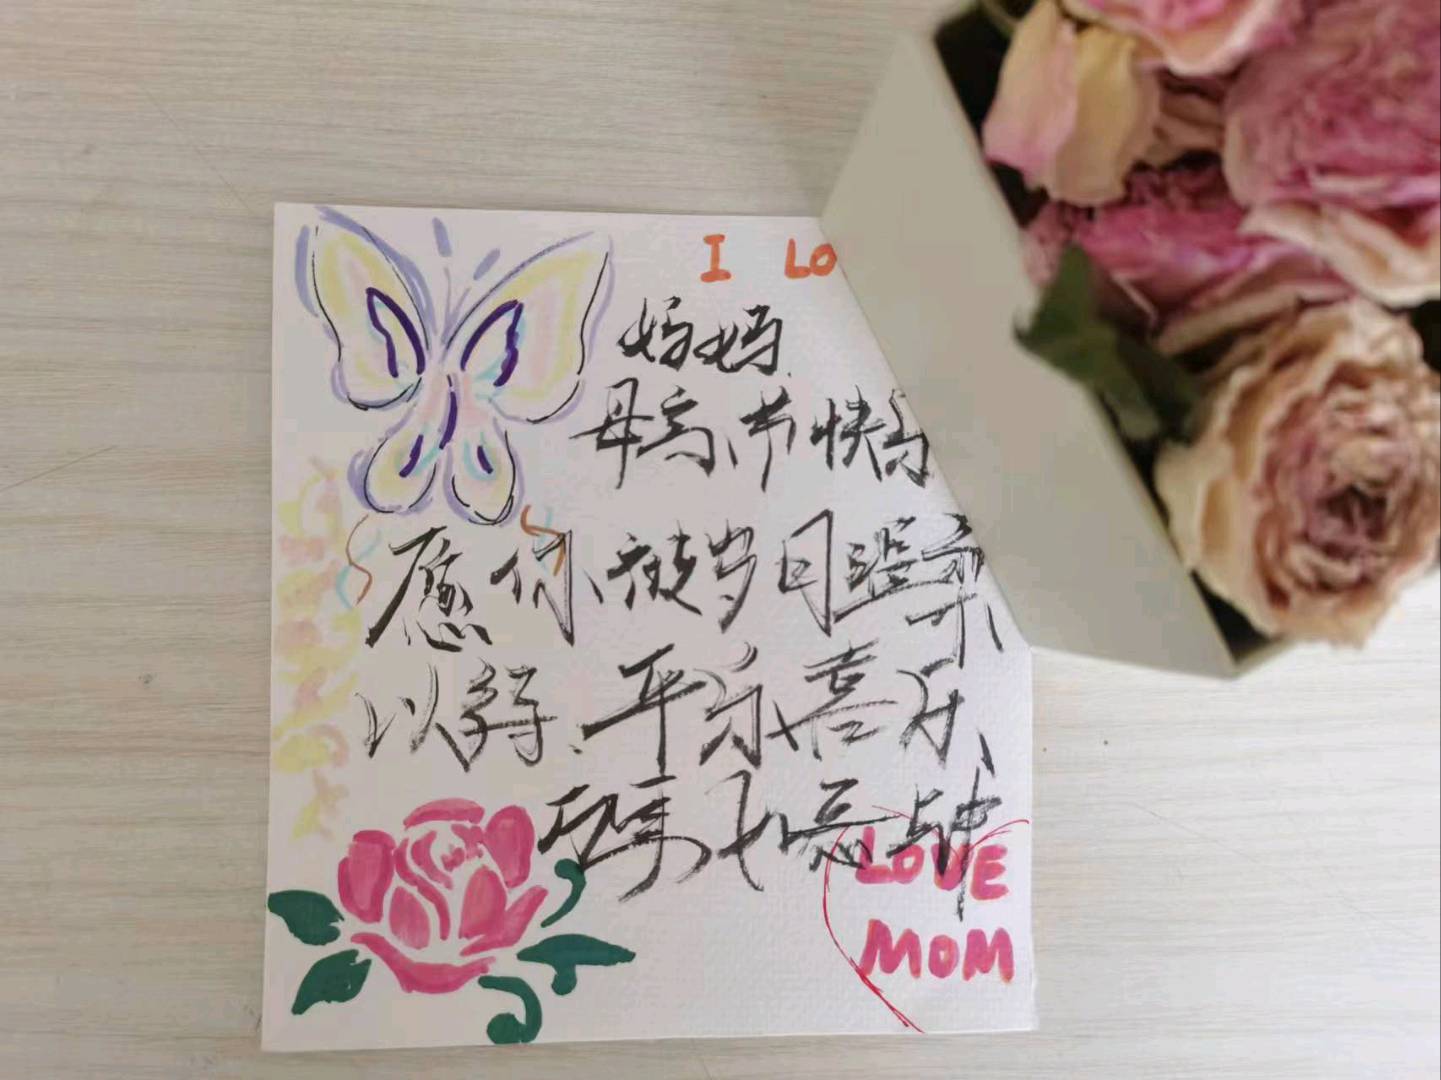 I LO
妈妈
母亲节快乐
愿你被岁月温柔
以 平安喜乐
万事
LOVE
MOM